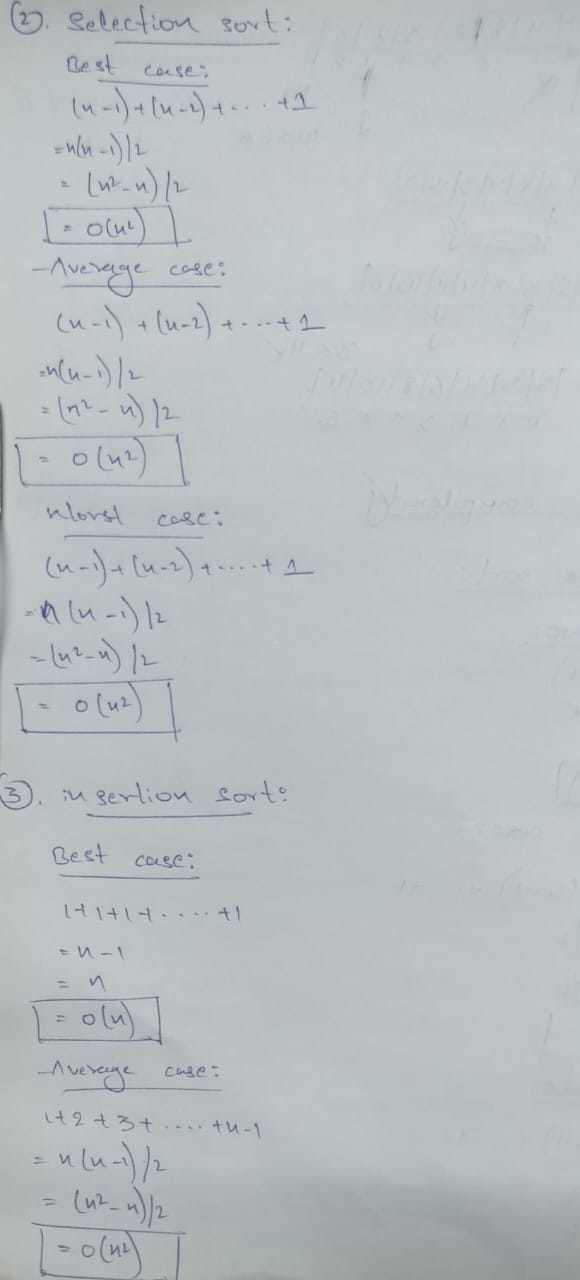 (2). Selection sort:
Best case:
(n-1)+(n-2)+....+1
=n(n-1)/2
= (n²-n)/2
= O(n²)
-Average case:
(n-1) + (n-2) + ....+ 1
=n(n-1)/2
= (n² - n)/2
= O(n²)
Worst case:
(n-1)+(n-2)+.....+ 1
= n(n-1)/2
= (n²-n)/2
= O(n²)
(3). insertion sort:
Best case:
1+1+1+.....+1
= n-1
= n
= O(n)
-Average case:
1+2+3+....+n-1
= n(n-1)/2
= (n²-n)/2
= O(n²)